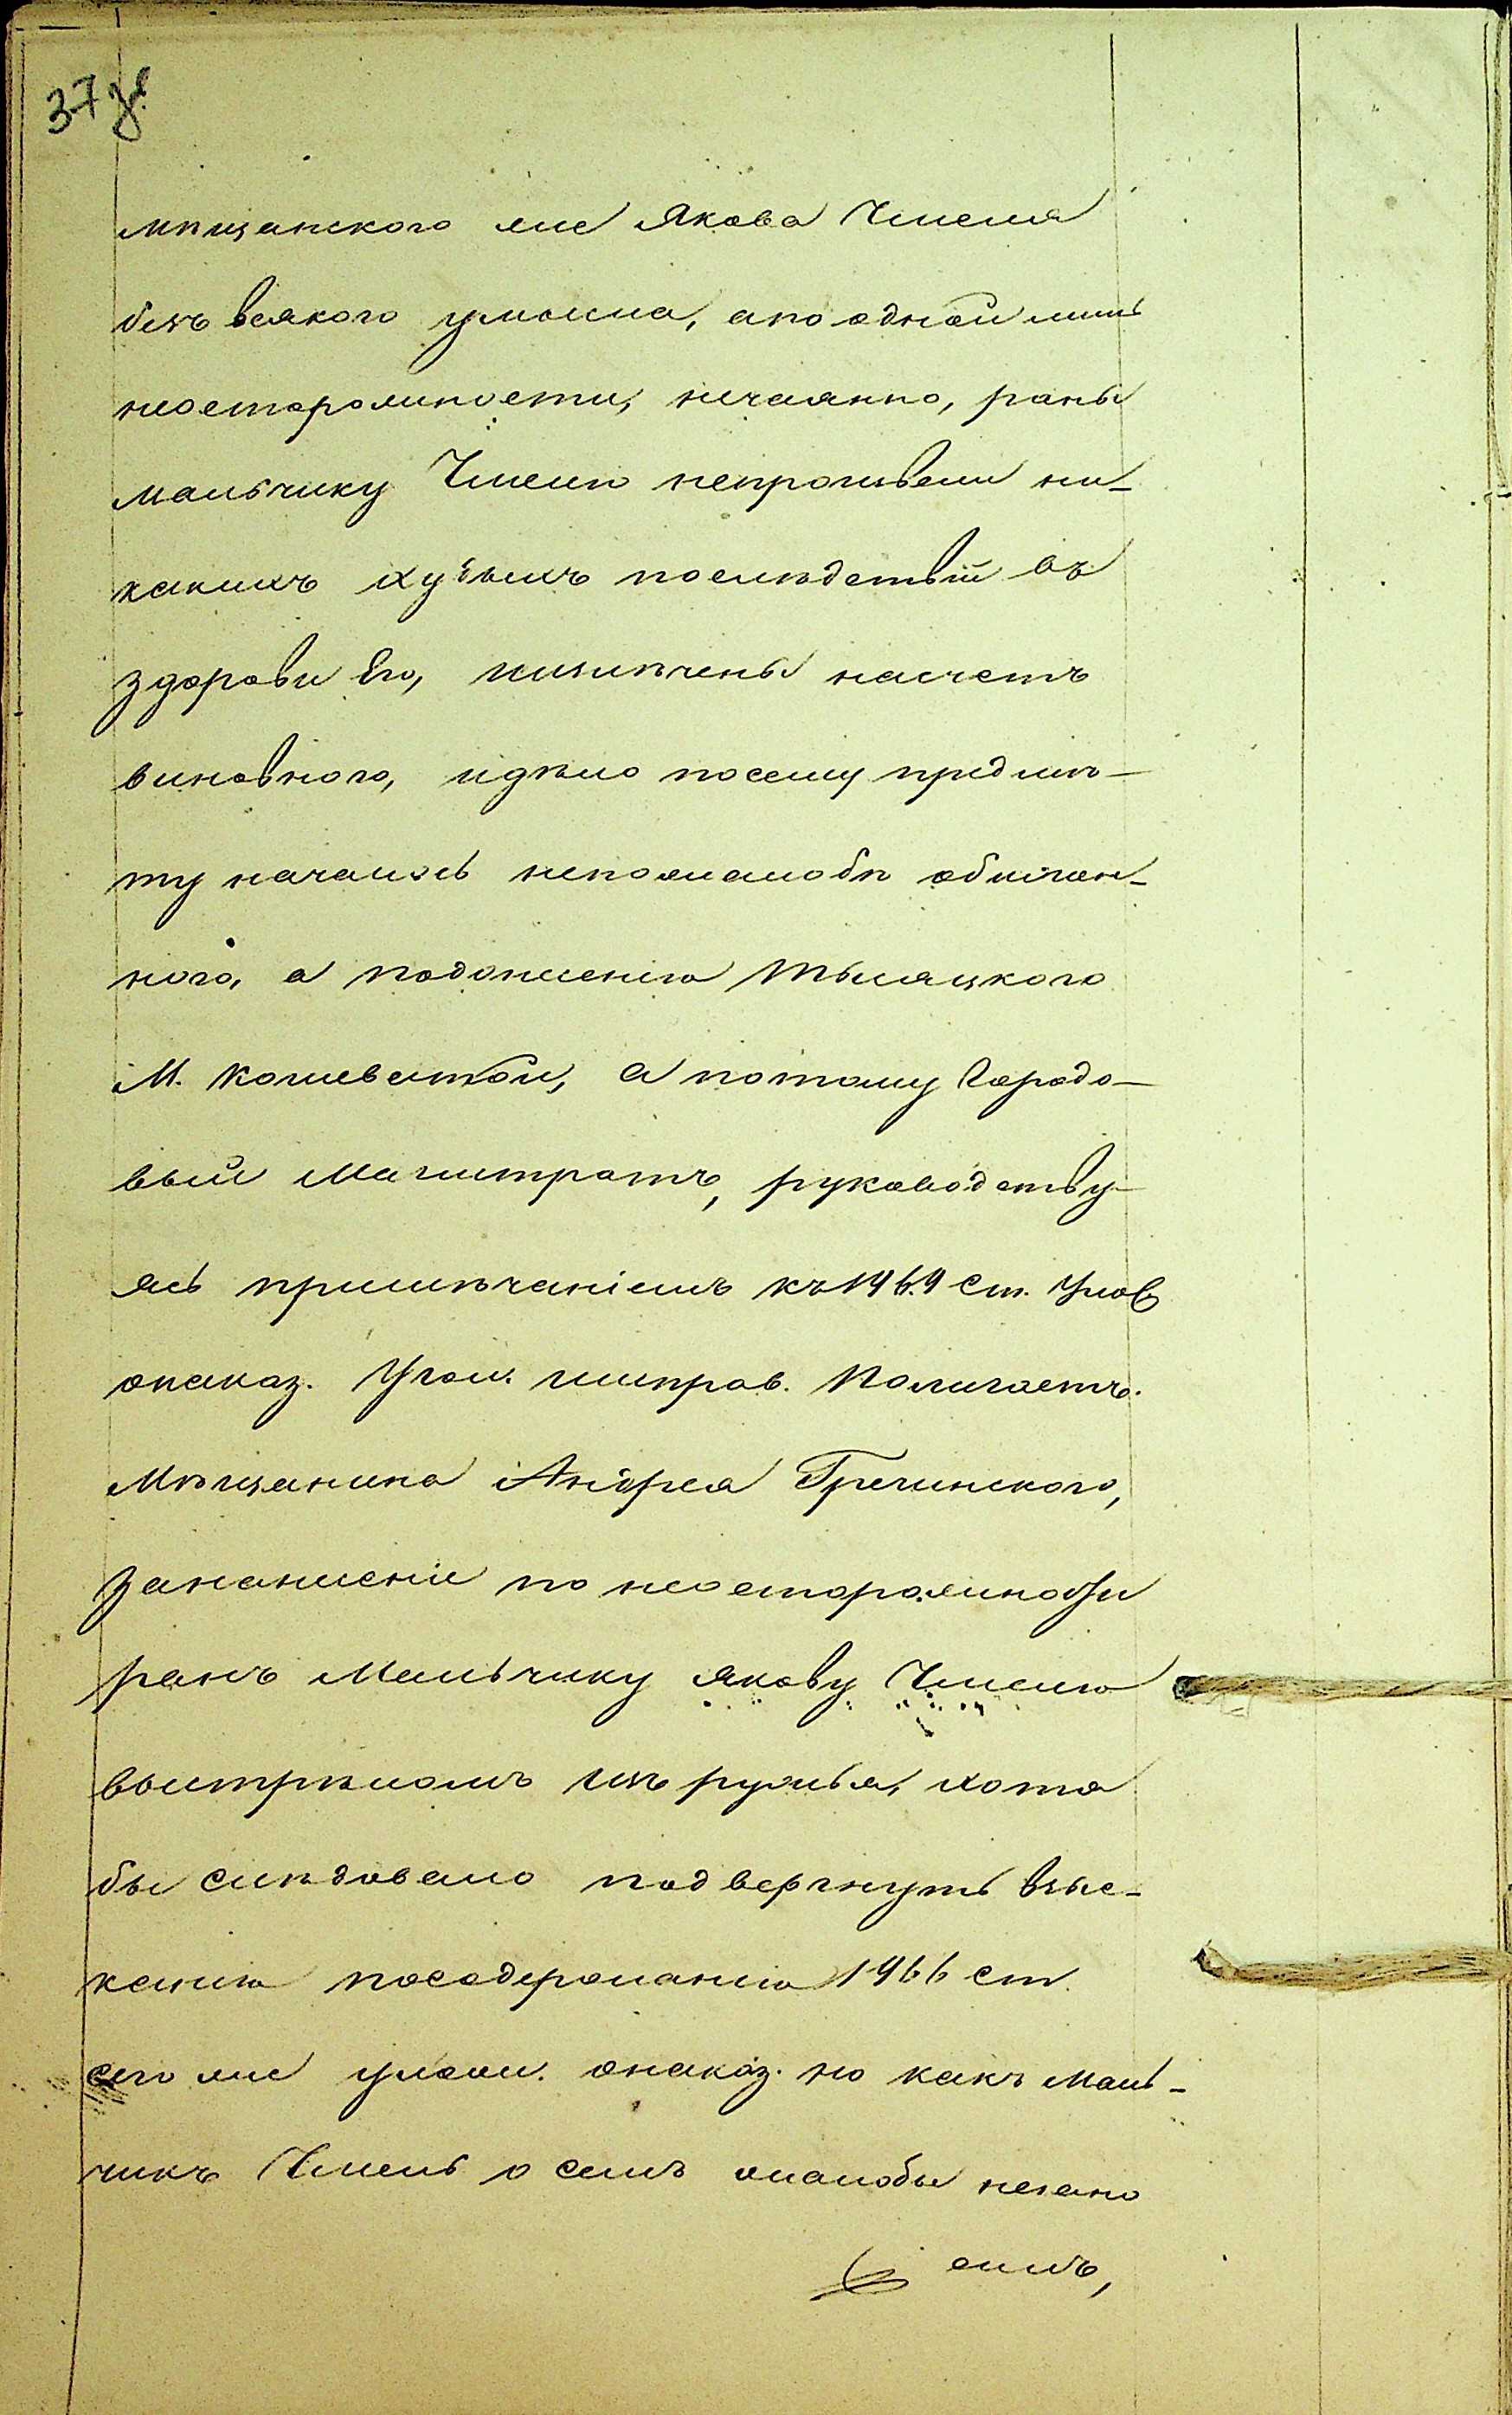 37 зв.
мѣщанского же Якова Чмеля
безъ всякого умысла, а по одной лишь
неосторожности, нечаянно, раны
мальчику Чмелю непроизвели ни-
какихъ худыхъ послѣдствій въ
здоровьи Его, и излѣчены насчетъ
виновного, и дѣло посему предмѣ-
ту началось непожалобѣ обижен-
ного, а подонесенію Тысяцкого
М. Кошеватой, а потому Городо-
вый Магистратъ, руководству-
ясь примѣчаніемъ къ 1969 ст. Улож
онаказ. Угол. иисправ. Полагаетъ.
Мѣщанина Андрея Гречинского,
зананесеніе по неосторожности
ранъ Мальчику Якову Чмелю
выстрѣломъ изъ ружья, хотя
бы слѣдовало подвергнуть взыс-
канію посодержанію 1966 ст.
сего же улож. онаказ. но какъ маль-
чикъ Чмель о семъ жалобы незано
силъ,